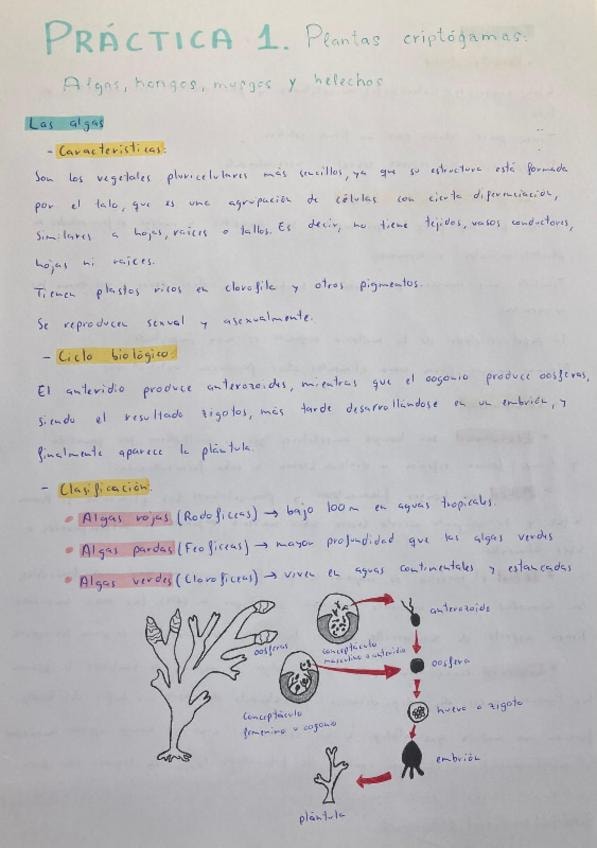 PRÁCTICA 1. Plantas criptógamas:
Algas, hongos, musgos y helechos
Las algas
- Características:
Son los vegetales pluricelulares más sencillos, ya que su estructura está formada
por el talo, que es una agrupación de células con cierta diferenciación,
similares a hojas, raíces o tallos. Es decir, no tiene tejidos, vasos conductores,
hojas ni raíces.
Tienen plastos ricos en clorofila y otros pigmentos.
Se reproducen sexual y asexualmente.
- Ciclo biológico:
El anteridio produce anterozoides, mientras que el oogonio produce oosferas,
siendo el resultado zigotos, más tarde desarrollándose en un embrión, y
finalmente aparece la plántula.
- Clasificación:
• Algas rojas (Rodofíceas) → bajo 100m en aguas tropicales.
• Algas pardas (Feofíceas) → mayor profundidad que las algas verdes
• Algas verdes (Clorofíceas) → viven en aguas continentales y estancadas
anterozoide
oosferas
conceptáculo
masculino o anteridio
oosfera
conceptáculo
femenino u oogonio
huevo o zigoto
embrión
plántula